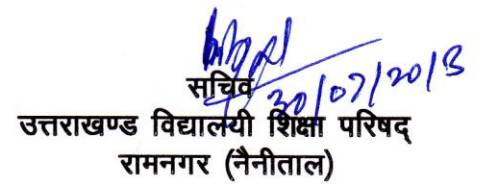 सचिव
30/07/2013
उत्तराखण्ड विद्यालयी शिक्षा परिषद्
रामनगर (नैनीताल)